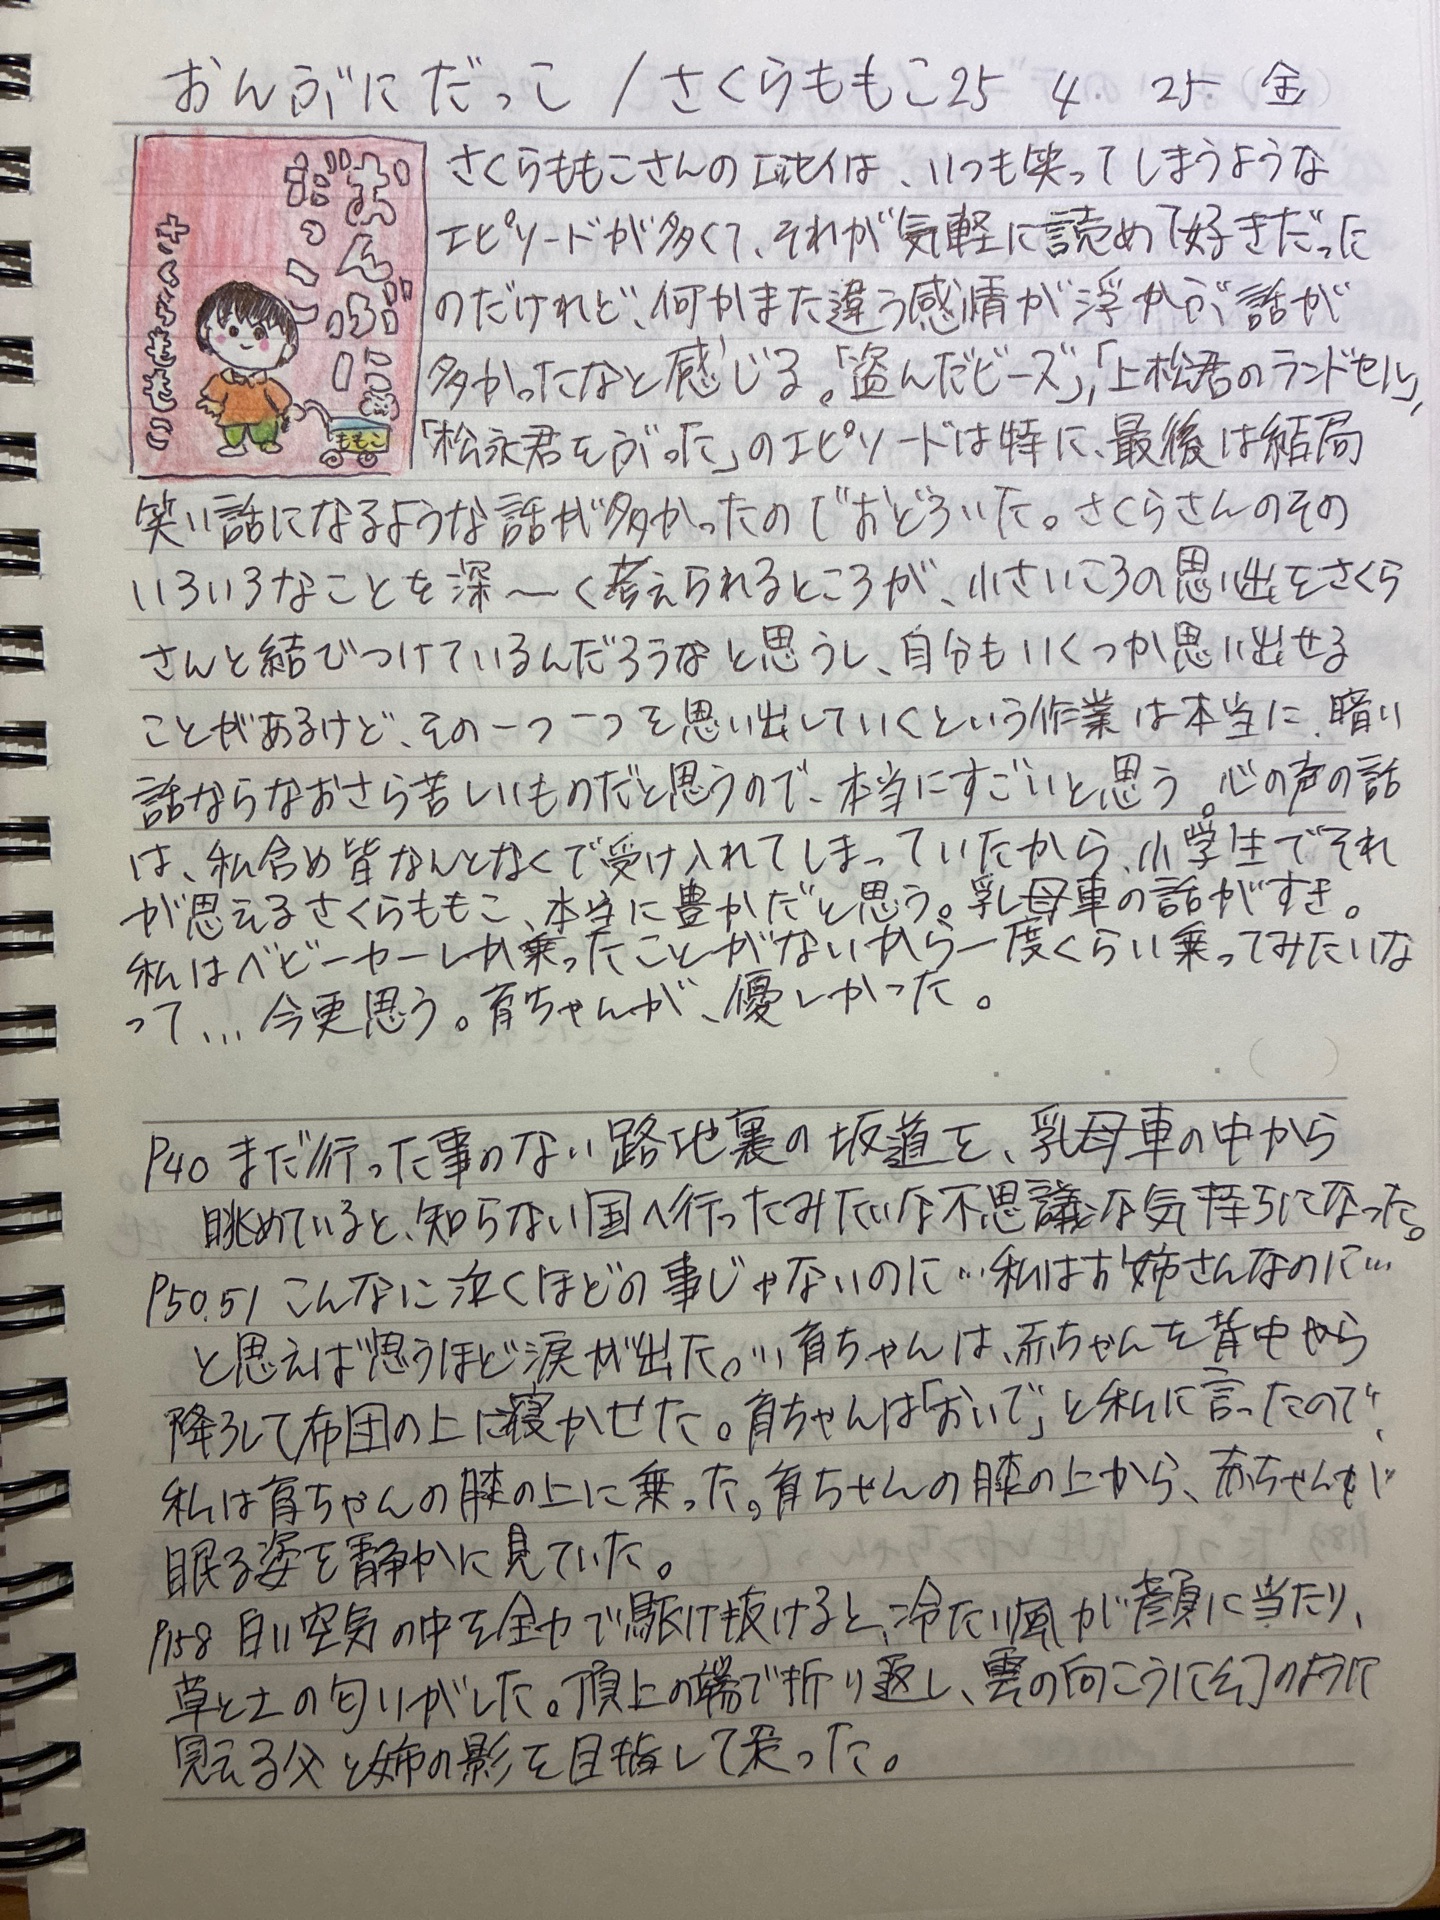 おんぶにだっこ / さくらももこ 25 4 25 金
おんぶに
だっこ
さくらももこ
ももこ
さくらももこさんのエッセイは、いつも笑ってしまうような
エピソードが多くて、それが気軽に読めて好きだった
のだけれど、何かまた違う感情が浮かぶ話が
多かったなと感じる。「盗んだビーズ」,「上松君のランドセル」,
「松永君をぶった」のエピソードは特に、最後は結局
笑い話になるような話が多かったのでおどろいた。さくらさんのその
いろいろなことを深〜く考えられるところが、小さいころの思い出をさくら
さんと結びつけているんだろうなと思うし、自分もいくつか思い出せる
ことがあるけど、その一つ一つを思い出していくという作業は本当に、暗い
話ならなおさら苦しいものだと思うので、本当にすごいと思う。心の声の話
は、私含め皆なんとなくで受け入れてしまっていたから、小学生でそれ
が思えるさくらももこ、本当に豊かだと思う。乳母車の話がすき。
私はベビーカーしか乗ったことがないから一度くらい乗ってみたいな
って...今更思う。育ちゃんが、優しかった。
P40 まだ行った事のない路地裏の坂道を、乳母車の中から
眺めていると、知らない国へ行ったみたいな不思議な気持ちになった。
P50.51 こんなに泣くほどの事じゃないのに…私はお姉さんなのに…
と思えば思うほど涙が出た。…育ちゃんは、赤ちゃんを背中から
降ろして布団の上に寝かせた。育ちゃんは「おいで」と私に言ったので、
私は育ちゃんの膝の上に乗った。育ちゃんの膝の上から、赤ちゃんが
眠る姿を静かに見ていた。
P158 白い空気の中を全力で駆け抜けると、冷たい風が顔に当たり、
草と土の匂いがした。頂上の端で折り返し、雲の向こうに幻のように
見える父と姉の影を目指して走った。